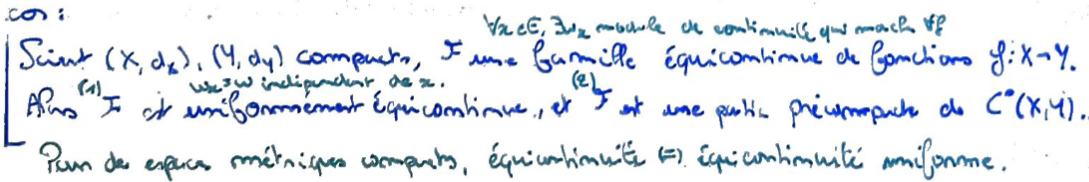 cos :
∀x∈E, ∃ω_x module de continuité qui marche ∀f
Soient (X, d_x), (Y, d_y) compacts, F une famille équicontinue de fonctions f: X→Y.
ω_x = ω indépendant de x.
Alors (1) F est uniformément équicontinue, et (2) F est une partie précompacte de C°(X,Y).
Pour des espaces métriques compacts, équicontinuité (=) équicontinuité uniforme.